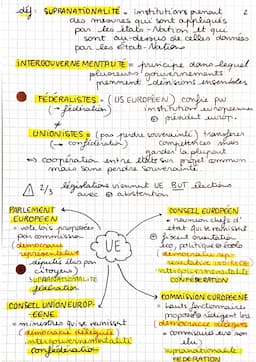 déf: SUPRANATIONALITÉ = institutions prenant
des mesures qui sont appliquées
par les états-Nation et qui
sont au-dessus de celles données
par les états-Nation
2
INTERGOUVERNEMENTALITÉ = principe dans lequel
plusieurs gouvernements
prennent décisions ensembles
FÉDÉRALISTES = (US EUROPÉEN) confie pv
(→ fédération) institutions européennes
président europ.
≠
UNIONISTES = (pas perdre souveraineté) transférer
(→ confédération) compétences mais
garder la plupart
↳ coopération entre états sur projet commun
mais sans perdre souveraineté
⚠ 2/3 législations viennent UE BUT élections
avec abstention
PARLEMENT
EUROPÉEN
= vote lois proposées
par commission
(démocratie
représentative
députés élus par
citoyens)
SUPRANATIONALITÉ
fédération
UE
CONSEIL EUROPÉEN
= réunion chefs d'
état qui se réunissent
fixent orientation
éco, politique &
(démocratie représentative
INTERGOUVERNEMENTALITÉ
CONFÉDÉRATION
CONSEIL UNION EUROP-
ÉENE
= ministres qui se réunissent
(démocratie déléguée
intergouvernementalité
confédération
COMMISSION EUROPÉENNE
= hauts fonctionnaires
proposent rédigent lois
démocratie déléguée
= commissaire
son élu)
supranationalité
FÉDÉRATION